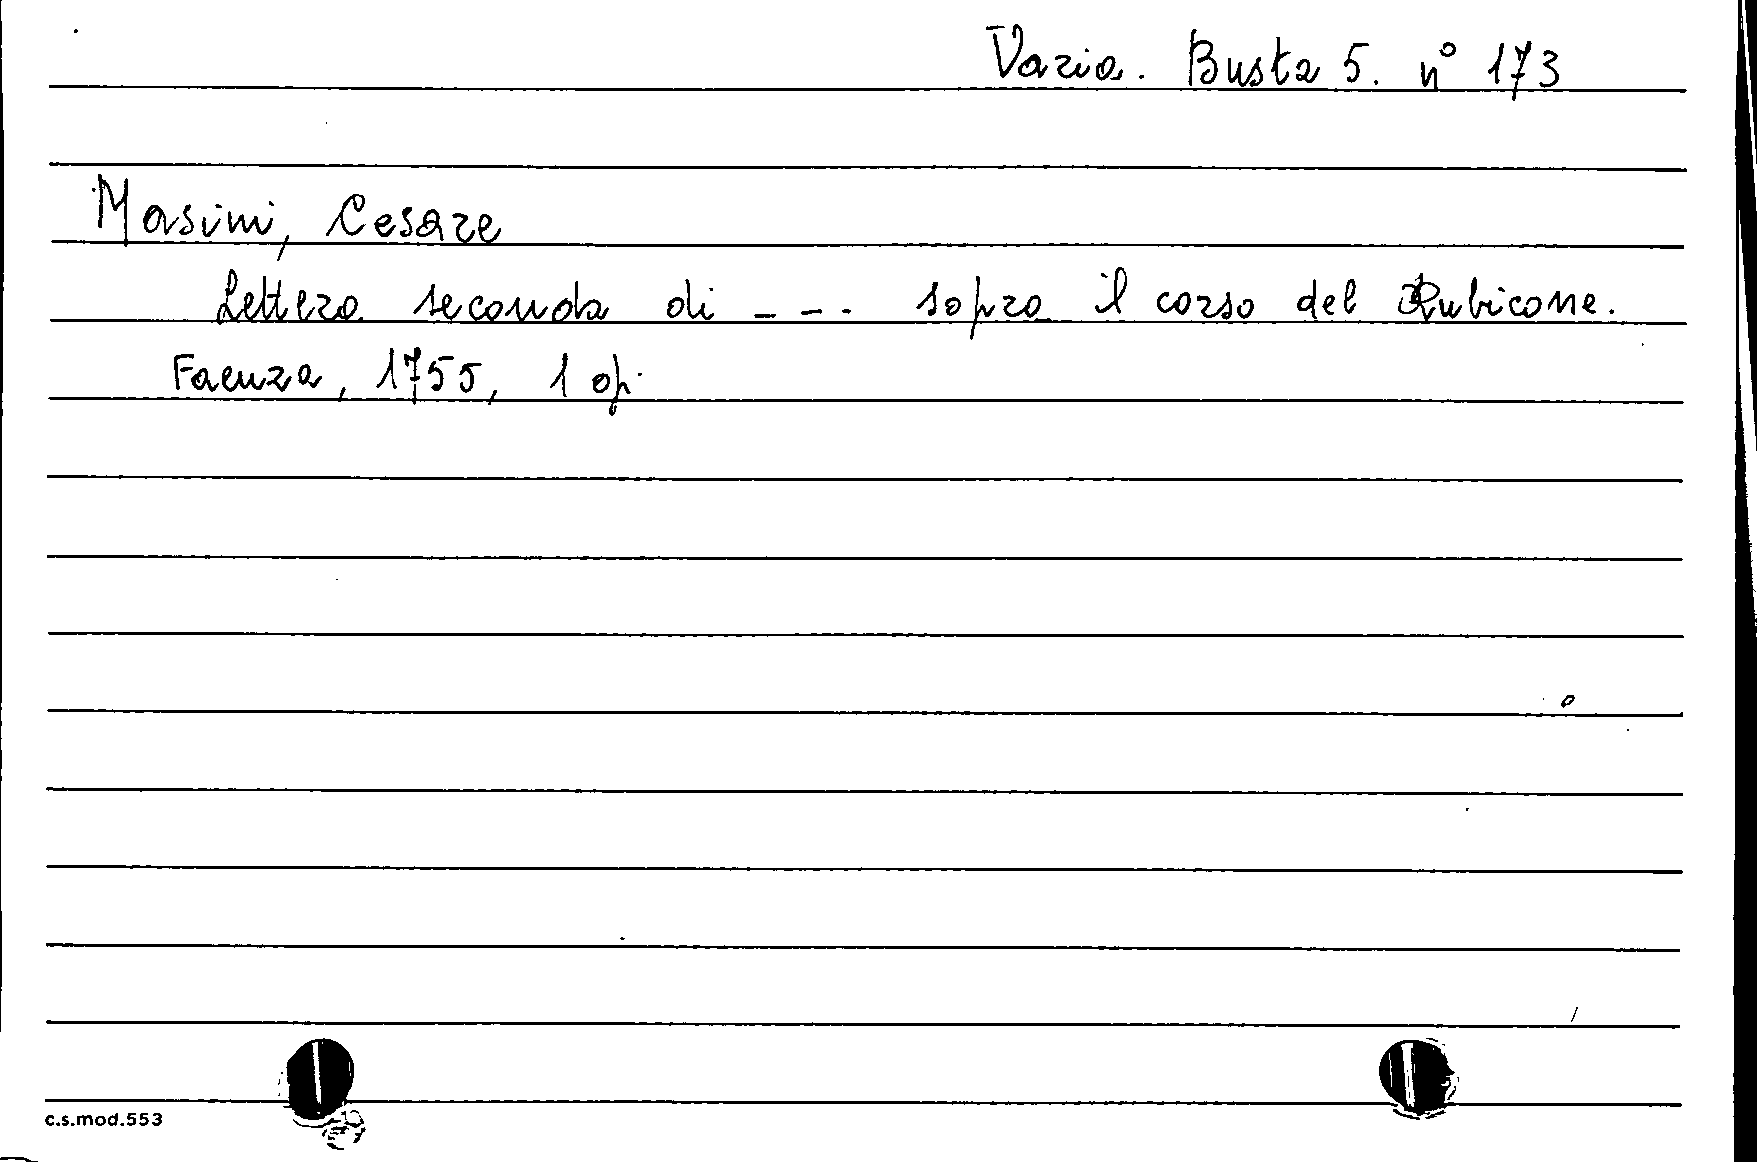 Varia. Busta 5. n° 173
Masini, Cesare
Lettera seconda di --- sopra il corso del Rubicone.
Faenza, 1755, 1 op.
c.s.mod.553